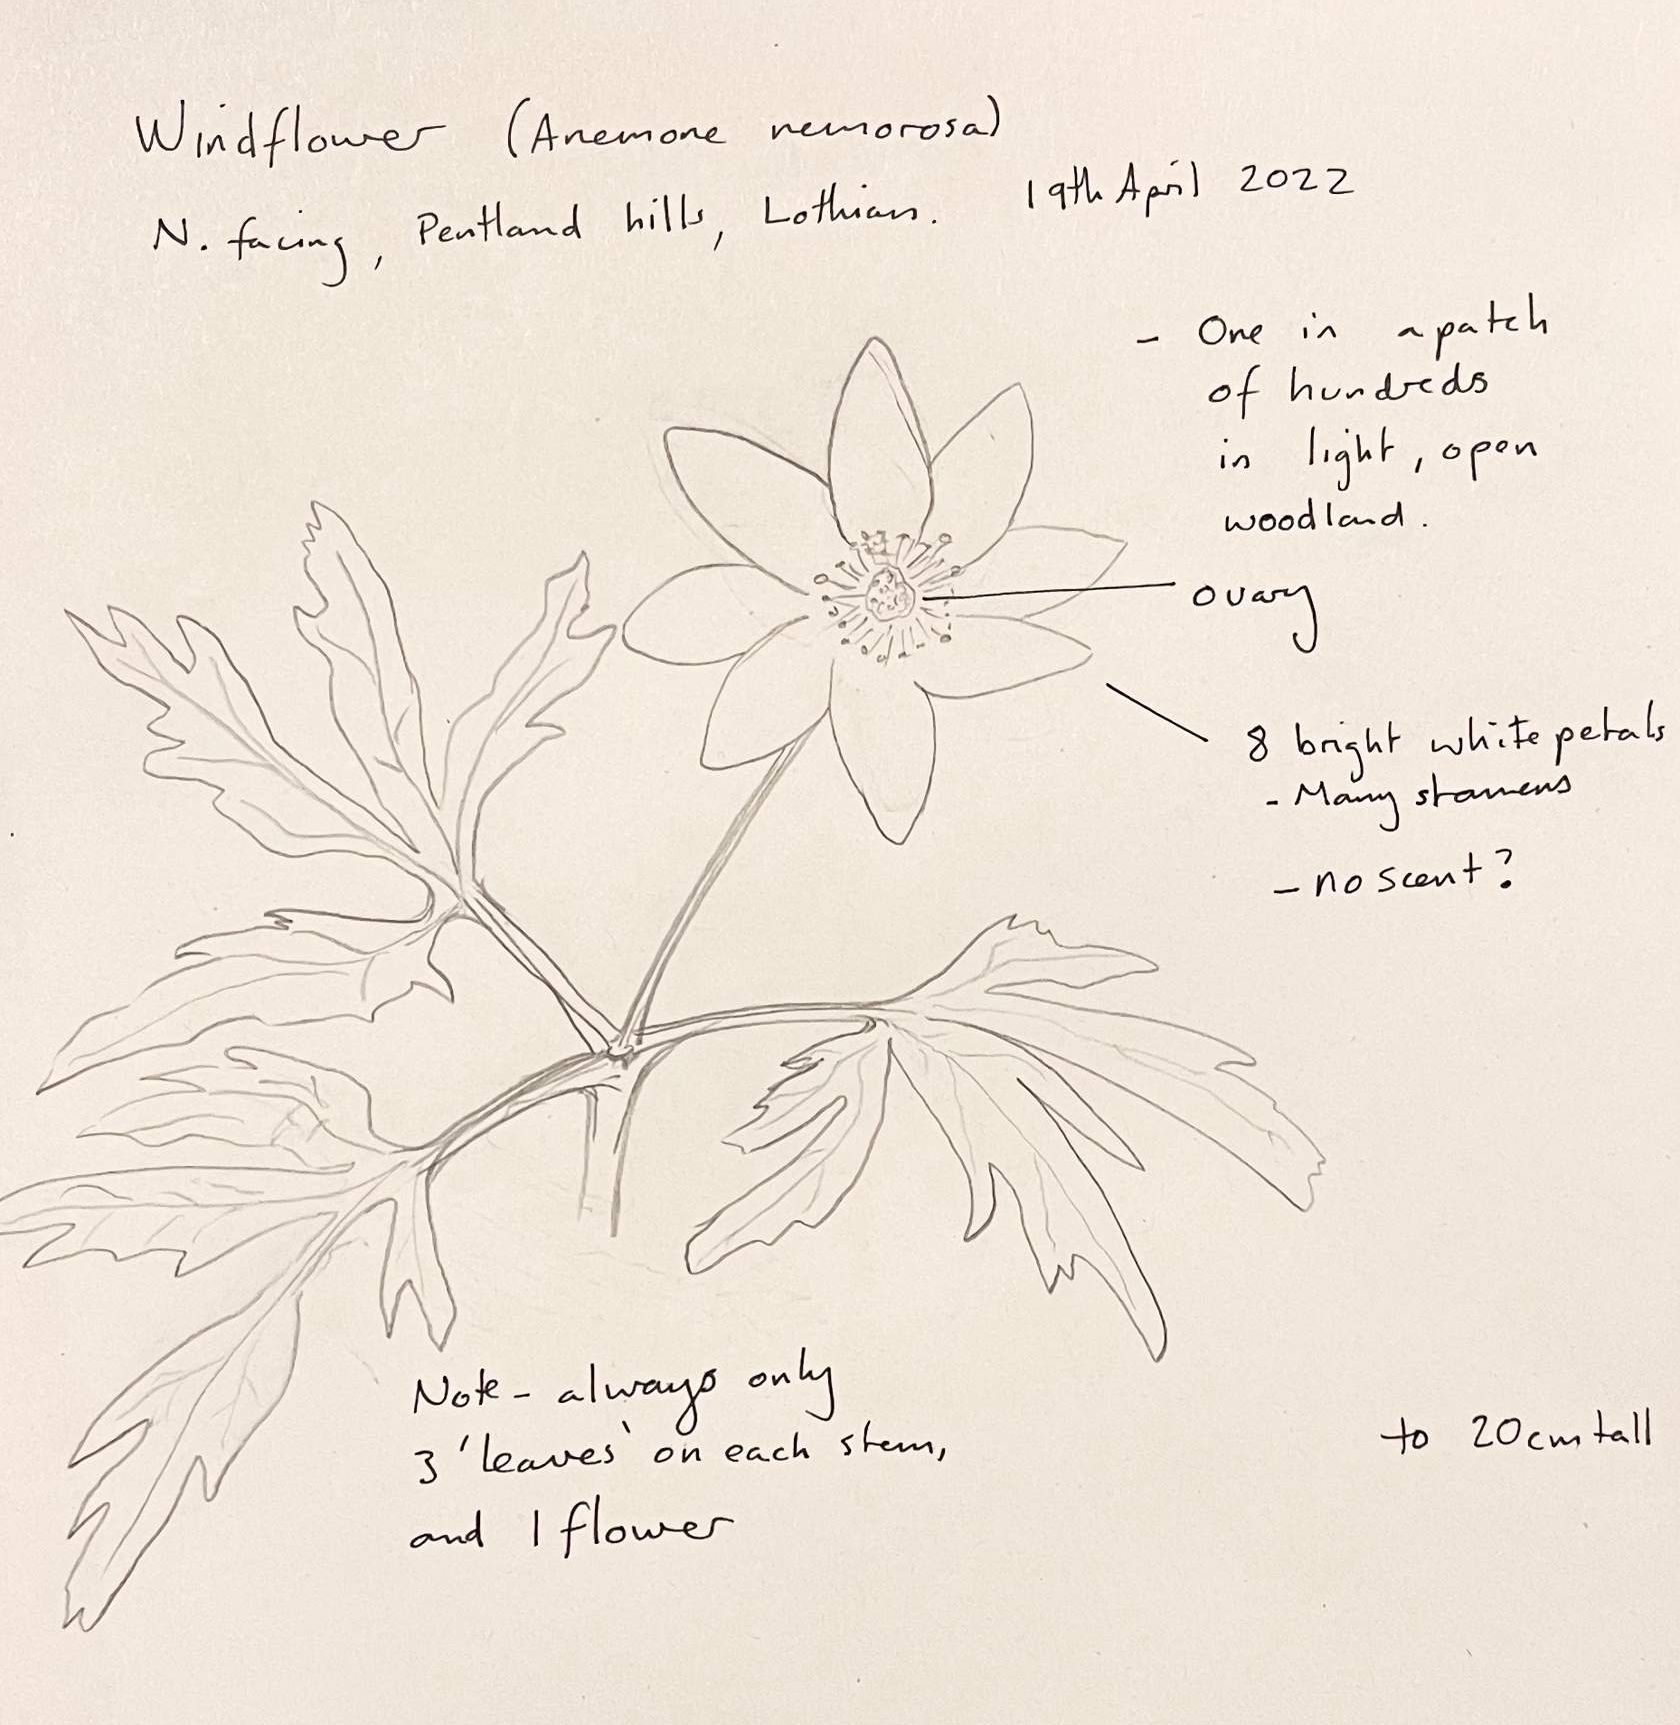 Windflower (Anemone nemorosa)
N. facing, Pentland hills, Lothian. 19th April 2022
- One in a patch
of hundreds
in light, open
woodland.
ovary
8 bright white petals
- Many stamens
- no scent?
Note - always only
3 'leaves' on each stem,
and 1 flower
to 20cm tall